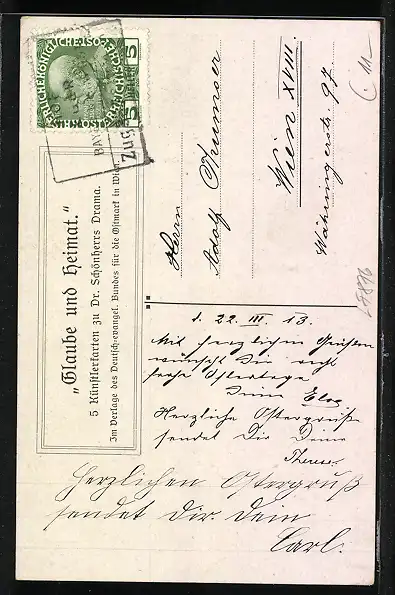 KAISERLICHE KÖNIGLICHE ÖSTERREICHISCHE POST
5 5
BAY
Zug
„Glaube und Heimat.“
5 Künstlerkarten zu Dr. Schönherrs Drama.
Im Verlage des Deutsch-evangel. Bundes für die Ostmark in Wien
Herrn
Adolf
Wien XVIII.
Währingerstr. 97
d. 22. III. 13.
Mit herzlichen Grüßen
wünscht Dir recht
frohe Ostertage
Deine
Herzliche Ostergrüße
sendet Dir Deine
Therese.
Herzlichen Ostergruß
sendet Dir. Dein
Carl.